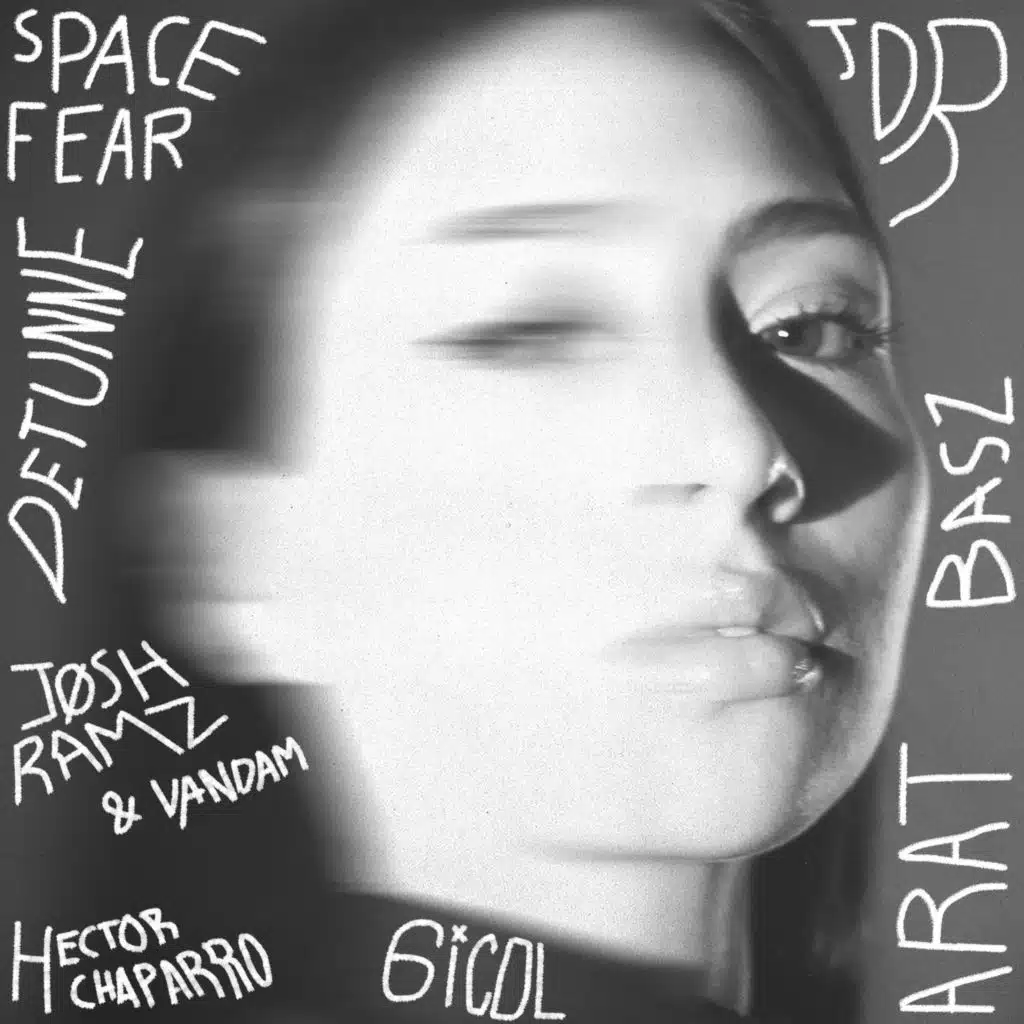 SPACE
FEAR
JDD
DETUNNE
BASZ
JØSH
RAMZ
& VANDAM
ARAT
HECTOR
CHAPARRO